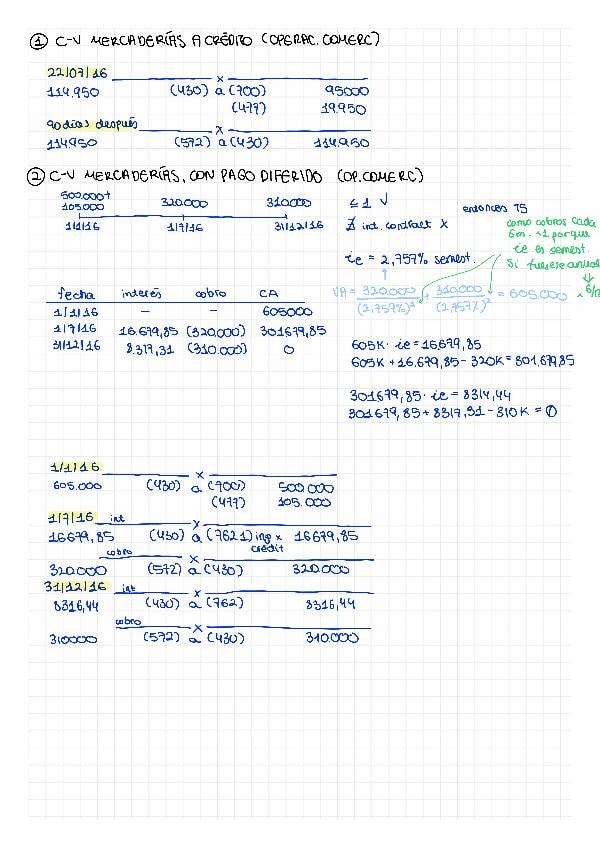 ① C-V MERCADERÍAS A CRÉDITO (OPERAC. COMERC)
22/07/16 x
114.950 (430) a (700) 95000
(477) 19.950
90 días después x
114.950 (572) a (430) 114.950
② C-V MERCADERÍAS, CON PAGO DIFERIDO (OP. COMERC)
500.000+
105.000 320.000 310.000
1/1/16 1/7/16 31/12/16
≤ 1 √
∄ int. contract X
entonces TS
como cobros cada
6m. <1 porque
ie es semest.
Si fuese anual
↓
x 6/12
↑
ie = 2,757% semest.
VA = 320.000 / (2,757%)¹ + 310.000 / (2,757%)² = 605.000
fecha interés cobro CA
1/1/16 – – 605000
1/7/16 16.679,85 (320.000) 301679,85
31/12/16 8.317,31 (310.000) 0
605K · ie = 16679,85
605K + 16.679,85 - 320K = 301.679,85
301679,85 · ie = 8314,44
301679,85 + 8317,31 - 310K = 0
1/1/16 x
605.000 (430) a (700) 500.000
(477) 105.000
1/7/16 int x
16679,85 (430) a (7621) ing x 16679,85
crédit
cobro x
320.000 (572) a (430) 320.000
31/12/16 int x
8316,44 (430) a (762) 8316,44
cobro x
310000 (572) a (430) 310.000